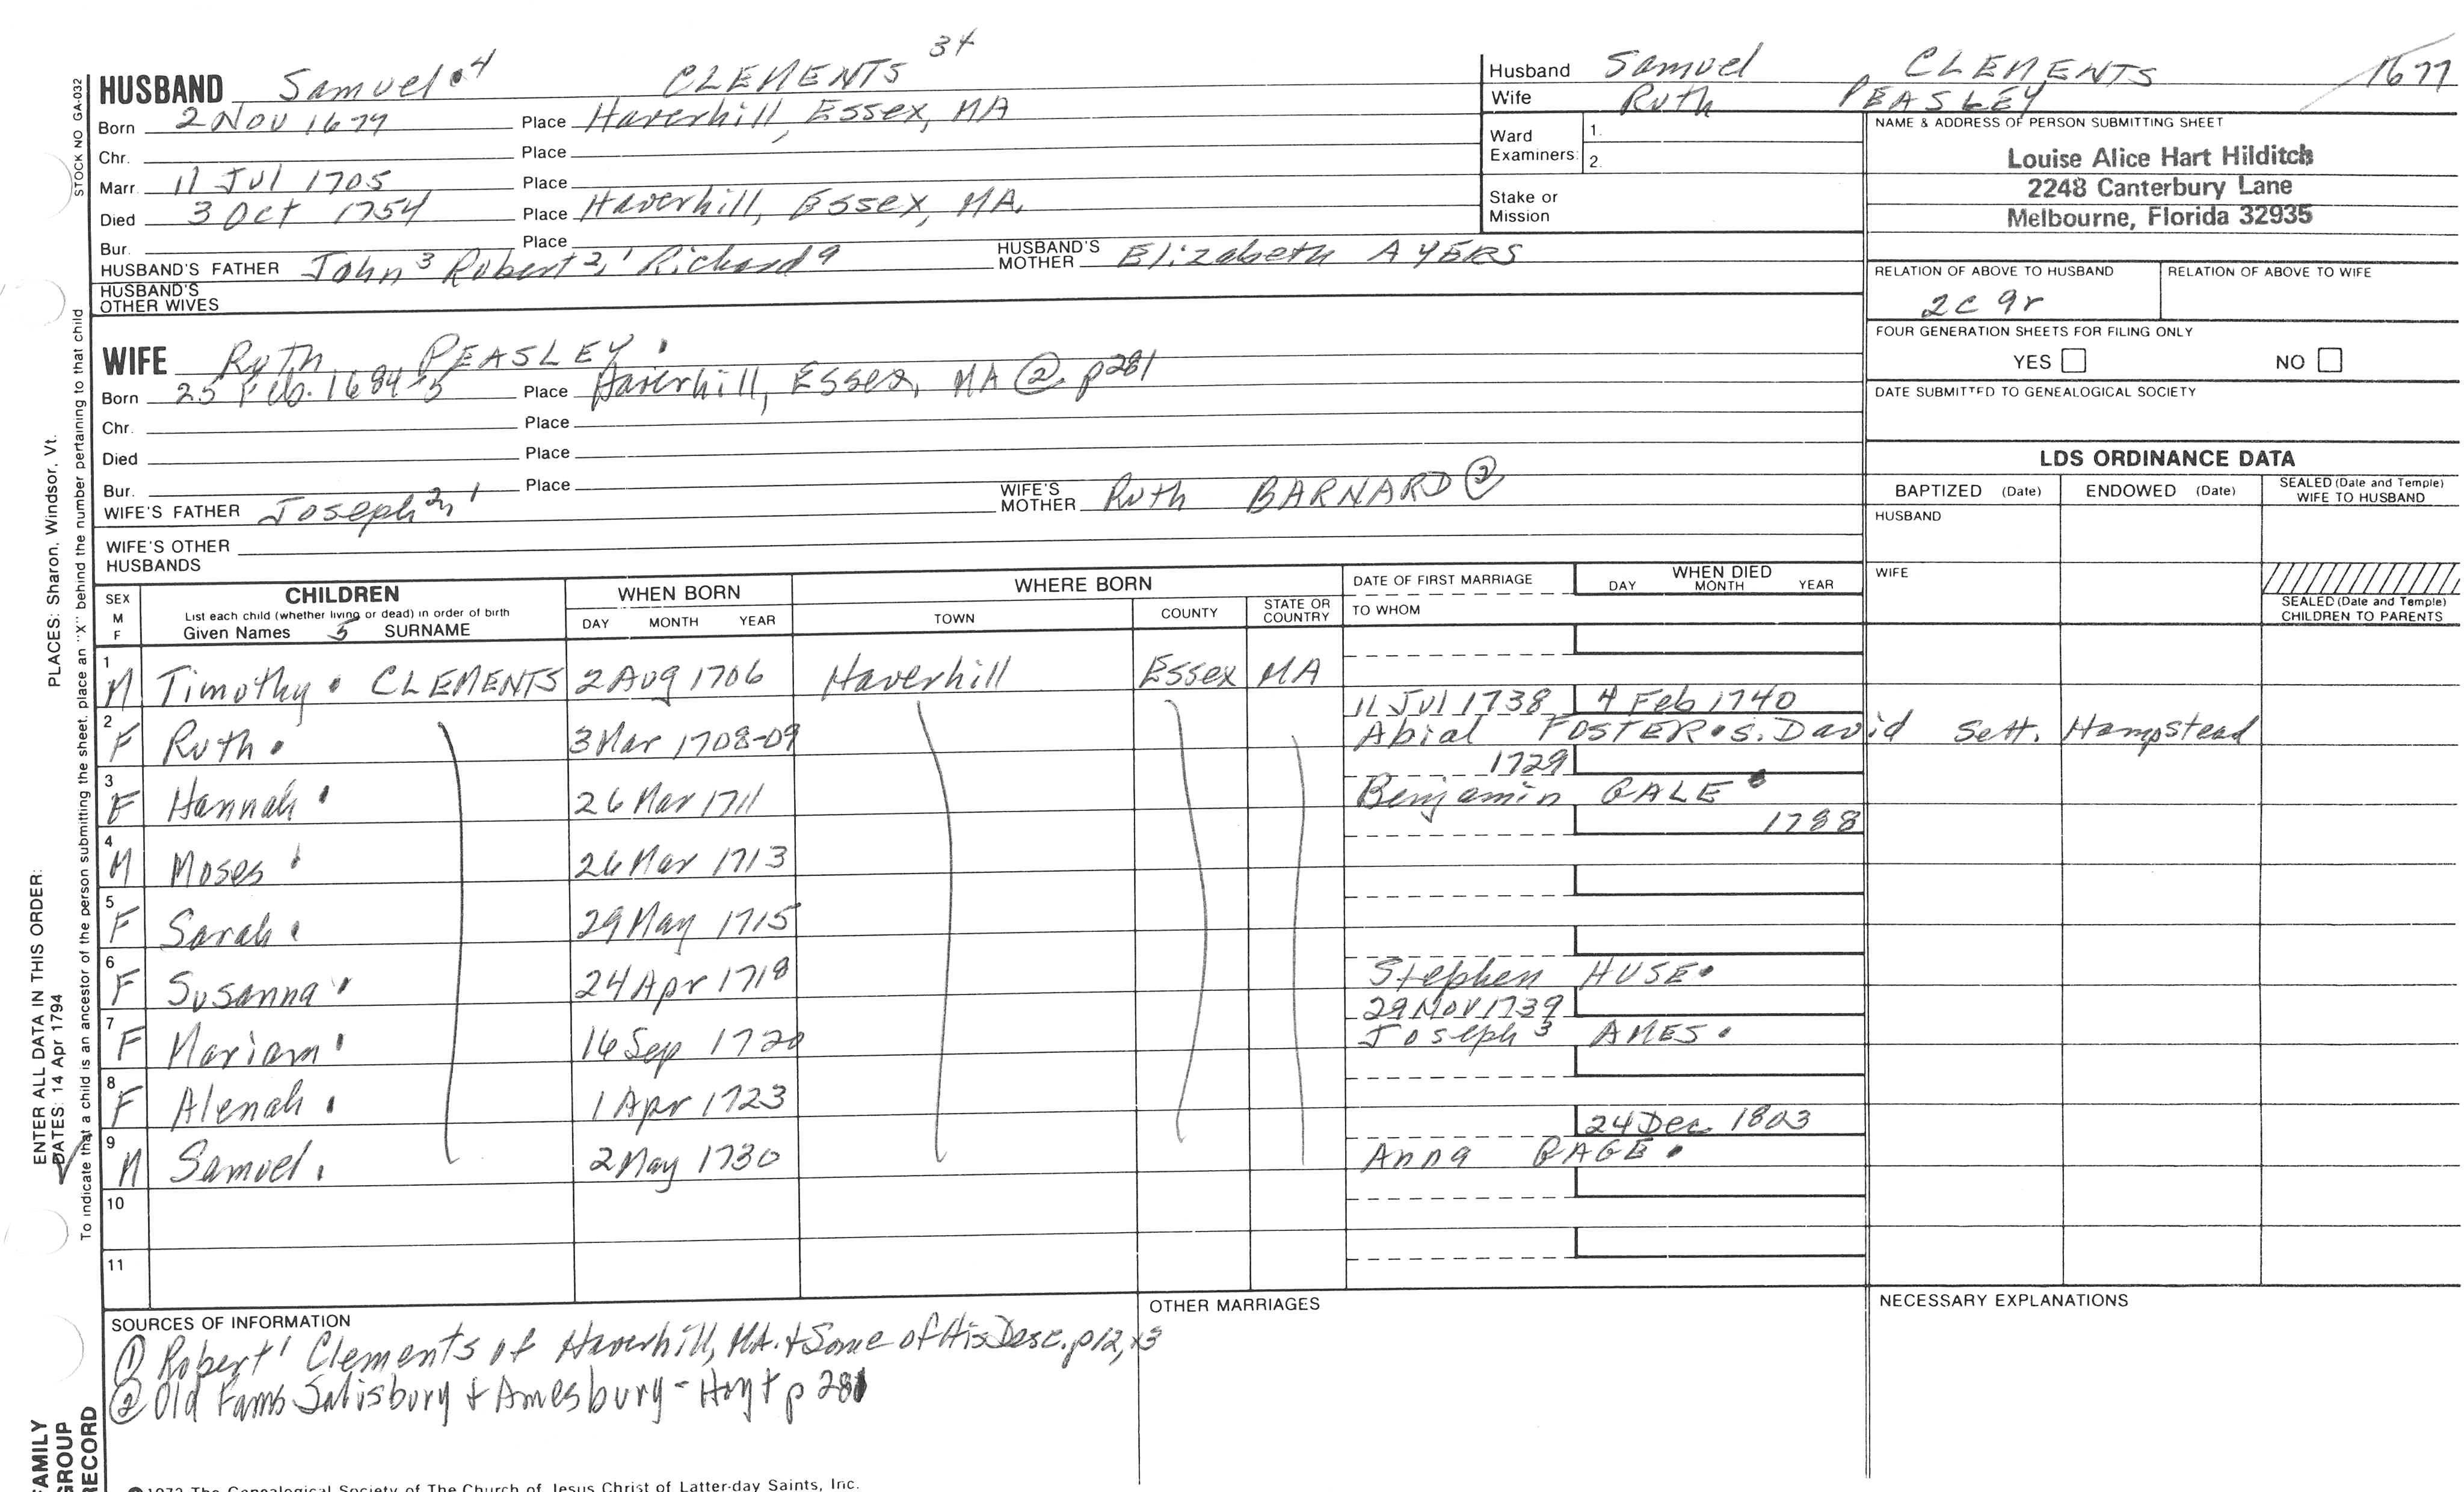 HUSBAND Samuel 4 CLEMENTS 34
Born 2 Nov 1677 Place Haverhill, Essex, MA
Chr. Place
Marr. 11 Jul 1705 Place
Died 3 Oct 1754 Place Haverhill, Essex, MA.
Bur. Place
HUSBAND'S FATHER John 3 Robert 2, 1 Richard a HUSBAND'S MOTHER Elizabeth AYERS
HUSBAND'S OTHER WIVES
WIFE Ruth PEASLEY
Born 25 Feb. 1684-5 Place Haverhill, Essex, MA ② p281
Chr. Place
Died Place
Bur. Place
WIFE'S FATHER Joseph 2, 1 WIFE'S MOTHER Ruth BARNARD ②
WIFE'S OTHER HUSBANDS
Husband Samuel CLEMENTS 1677
Wife Ruth PEASLEY
Ward Examiners: 1.
2.
Stake or Mission
NAME & ADDRESS OF PERSON SUBMITTING SHEET
Louise Alice Hart Hilditch
2248 Canterbury Lane
Melbourne, Florida 32935
RELATION OF ABOVE TO HUSBAND RELATION OF ABOVE TO WIFE
2c 9r
FOUR GENERATION SHEETS FOR FILING ONLY
YES NO
DATE SUBMITTED TO GENEALOGICAL SOCIETY
LDS ORDINANCE DATA
BAPTIZED (Date) ENDOWED (Date) SEALED (Date and Temple) WIFE TO HUSBAND
HUSBAND
WIFE
SEALED (Date and Temple) CHILDREN TO PARENTS
SEX M F CHILDREN WHEN BORN WHERE BORN DATE OF FIRST MARRIAGE WHEN DIED
List each child (whether living or dead) in order of birth DAY MONTH YEAR
Given Names 5 SURNAME DAY MONTH YEAR TOWN COUNTY STATE OR COUNTRY TO WHOM
1 M Timothy CLEMENTS 2 Aug 1706 Haverhill Essex MA
2 F Ruth 3 Mar 1708-09 11 Jul 1738 4 Feb 1740
Abial FOSTER s. David Sett. Hampstead
3 F Hannah 26 Mar 1711 1729
Benjamin GALE
4 M Moses 26 Mar 1713 1788
5 F Sarah 29 May 1715
6 F Susanna 24 Apr 1718
Stephen HUSE
7 F Mariam 16 Sep 1720 29 Nov 1739
Joseph 3 AMES
8 F Alenah 1 Apr 1723
9 M Samuel 2 May 1730 24 Dec 1803
Anna PAGE
10
11
SOURCES OF INFORMATION
① Robert 1 Clements of Haverhill, MA. + Some of His Desc. p12, 13
② Old Fams Salisbury + Amesbury - Hoyt p 281
OTHER MARRIAGES
NECESSARY EXPLANATIONS
1972 The Genealogical Society of The Church of Jesus Christ of Latter-day Saints, Inc.
STOCK NO GA-032
PLACES: Sharon, Windsor, Vt.
To indicate that a child is an ancestor of the person submitting the sheet, place an "X" behind the number pertaining to that child
ENTER ALL DATA IN THIS ORDER:
DATES: 14 Apr 1794
FAMILY
GROUP
RECORD